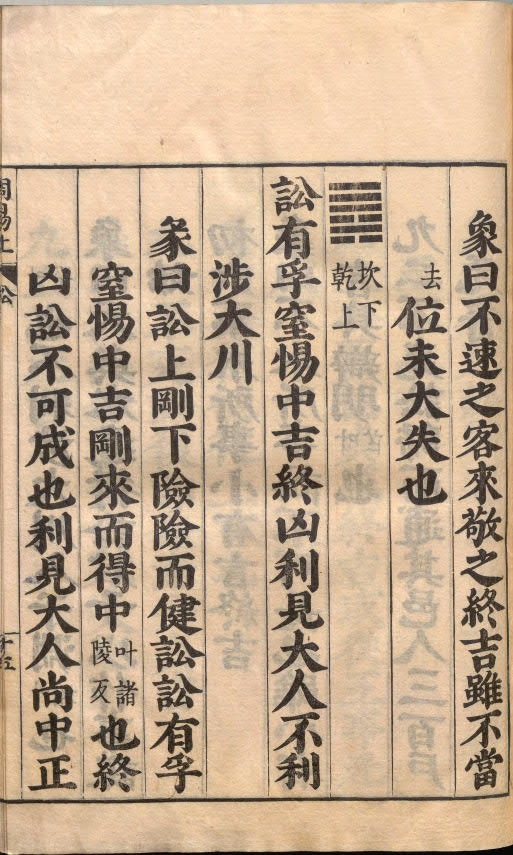 象曰不速之客來敬之終吉雖不當
去位未大失也
坎下
乾上
訟有孚窒惕中吉終凶利見大人不利
涉大川
彖曰訟上剛下險險而健訟訟有孚
窒惕中吉剛來而得中叶諸陵反也終
凶訟不可成也利見大人尚中正
周易上 訟
十五